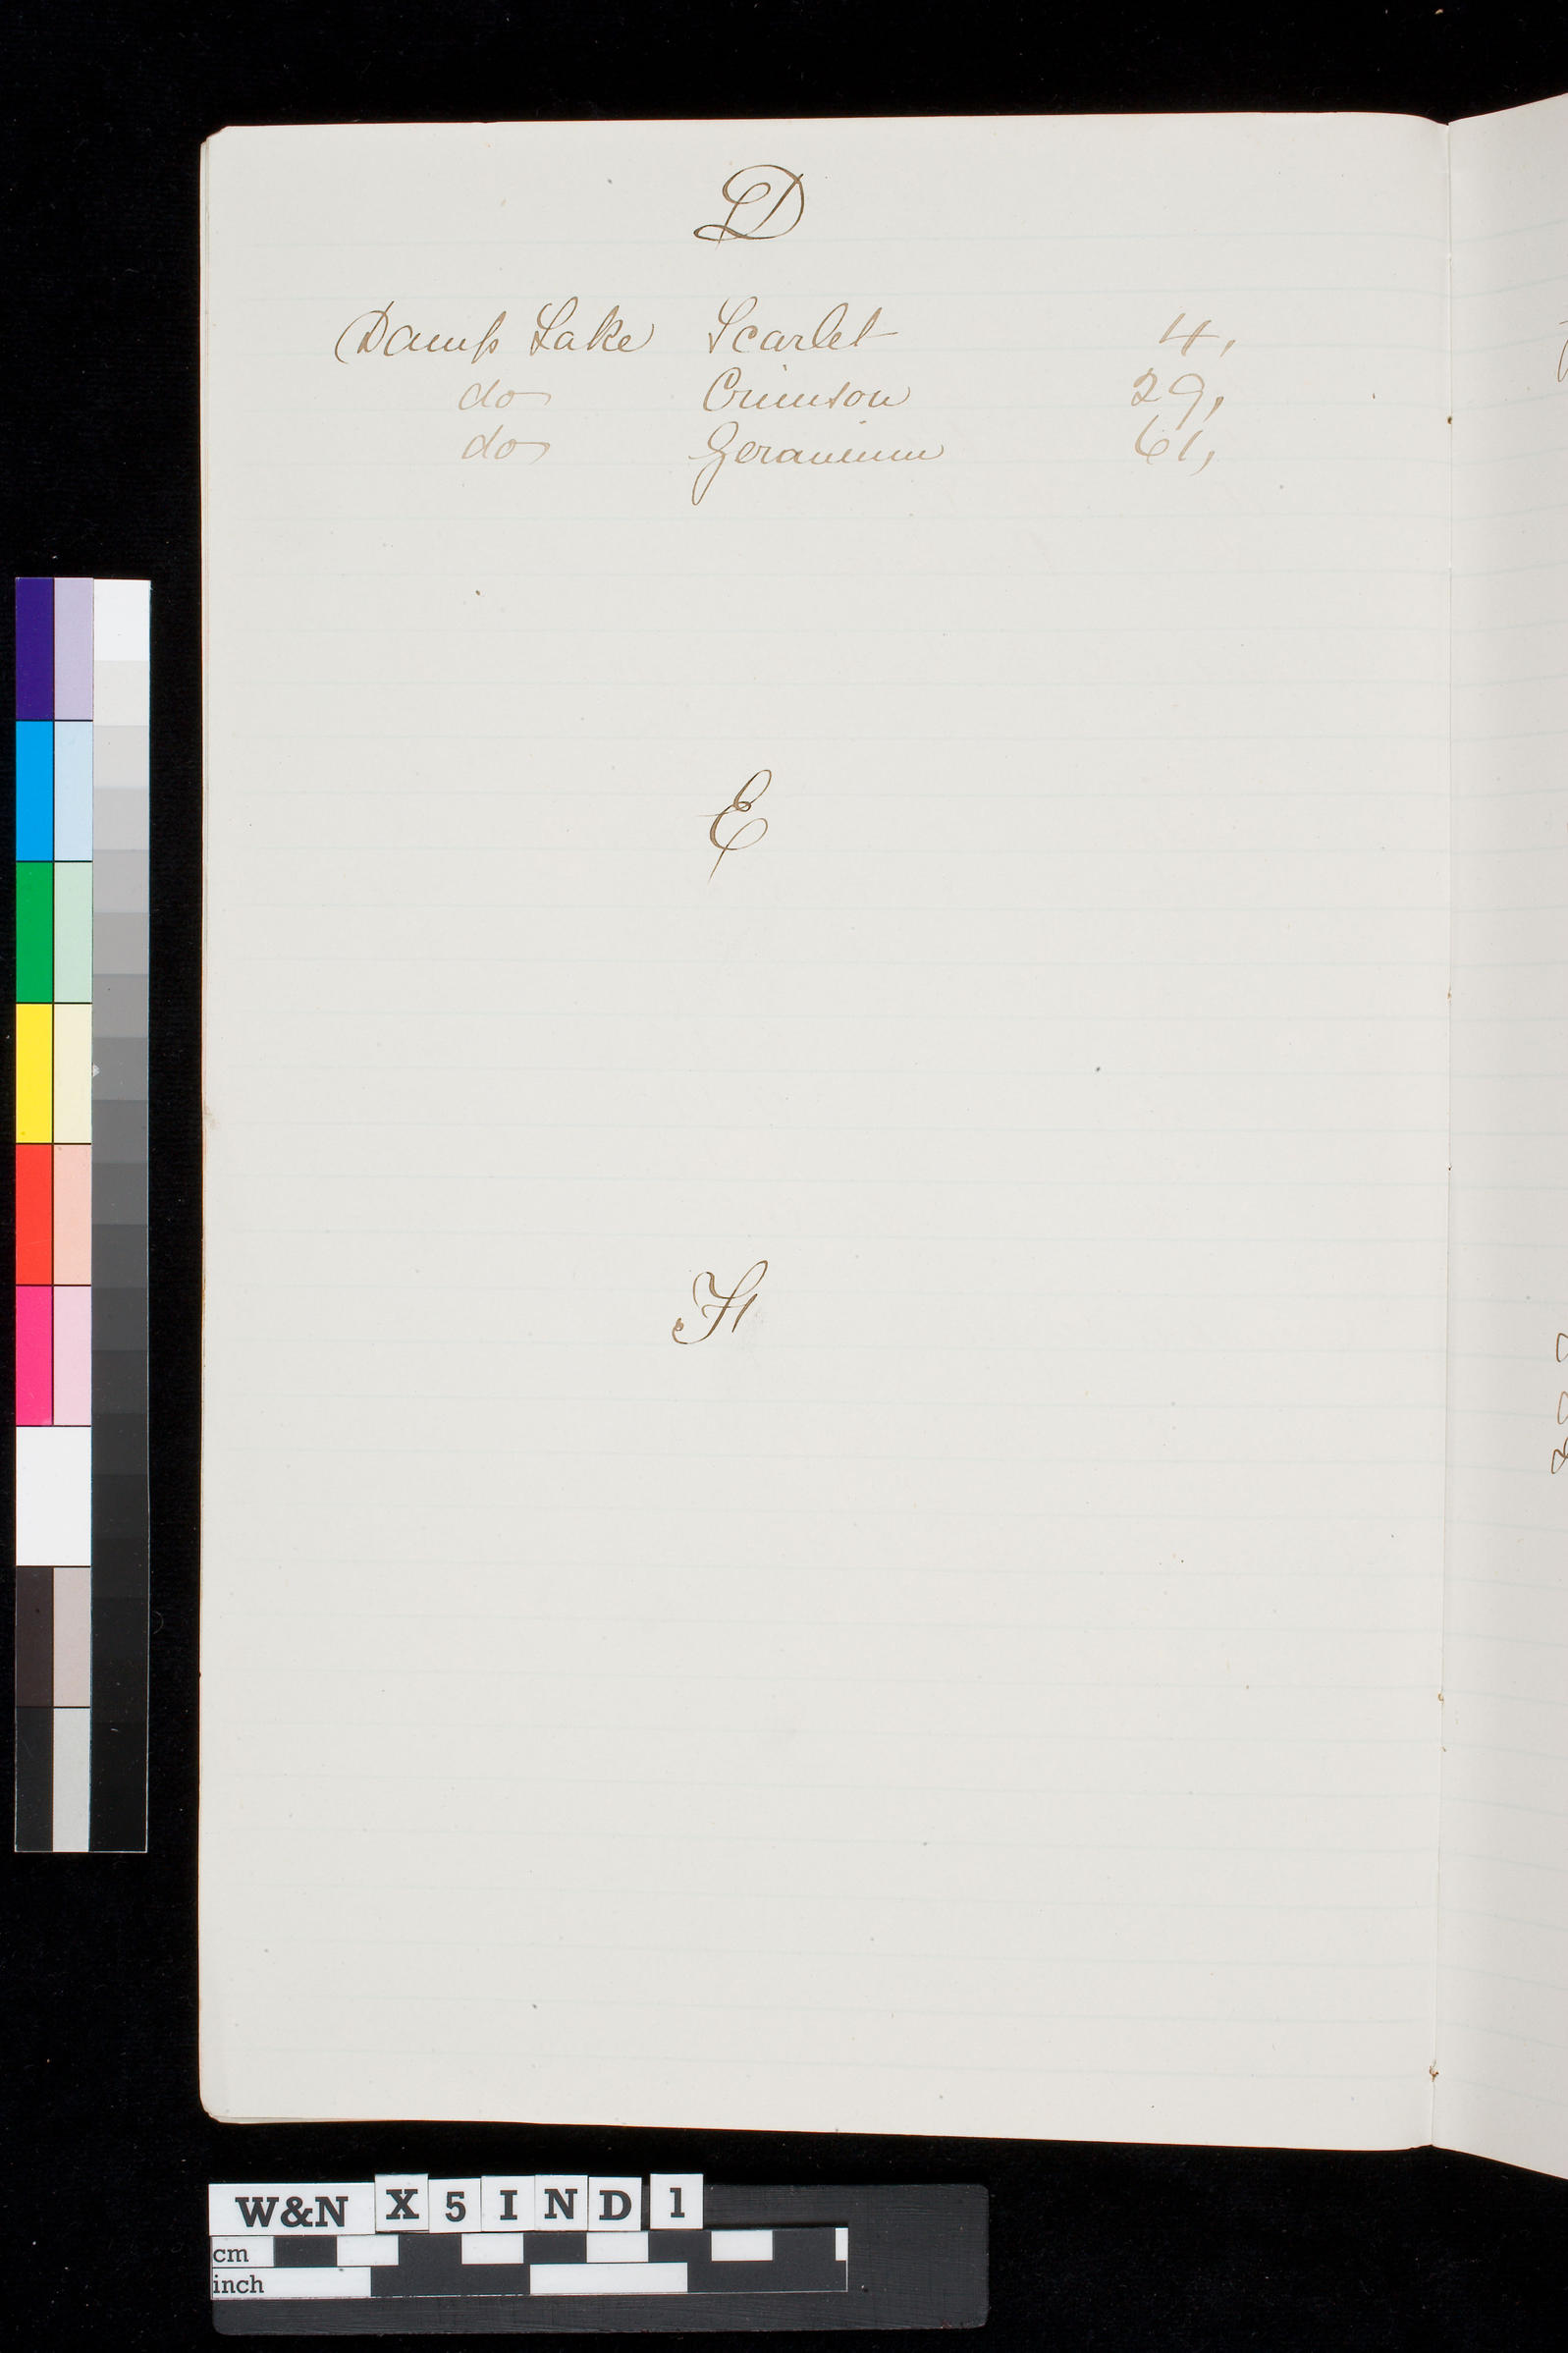 D
Damp Lake Scarlet 4,
do Crimson 29,
do Geranium 61,
E
F
W&N X 5 I N D 1
cm
inch